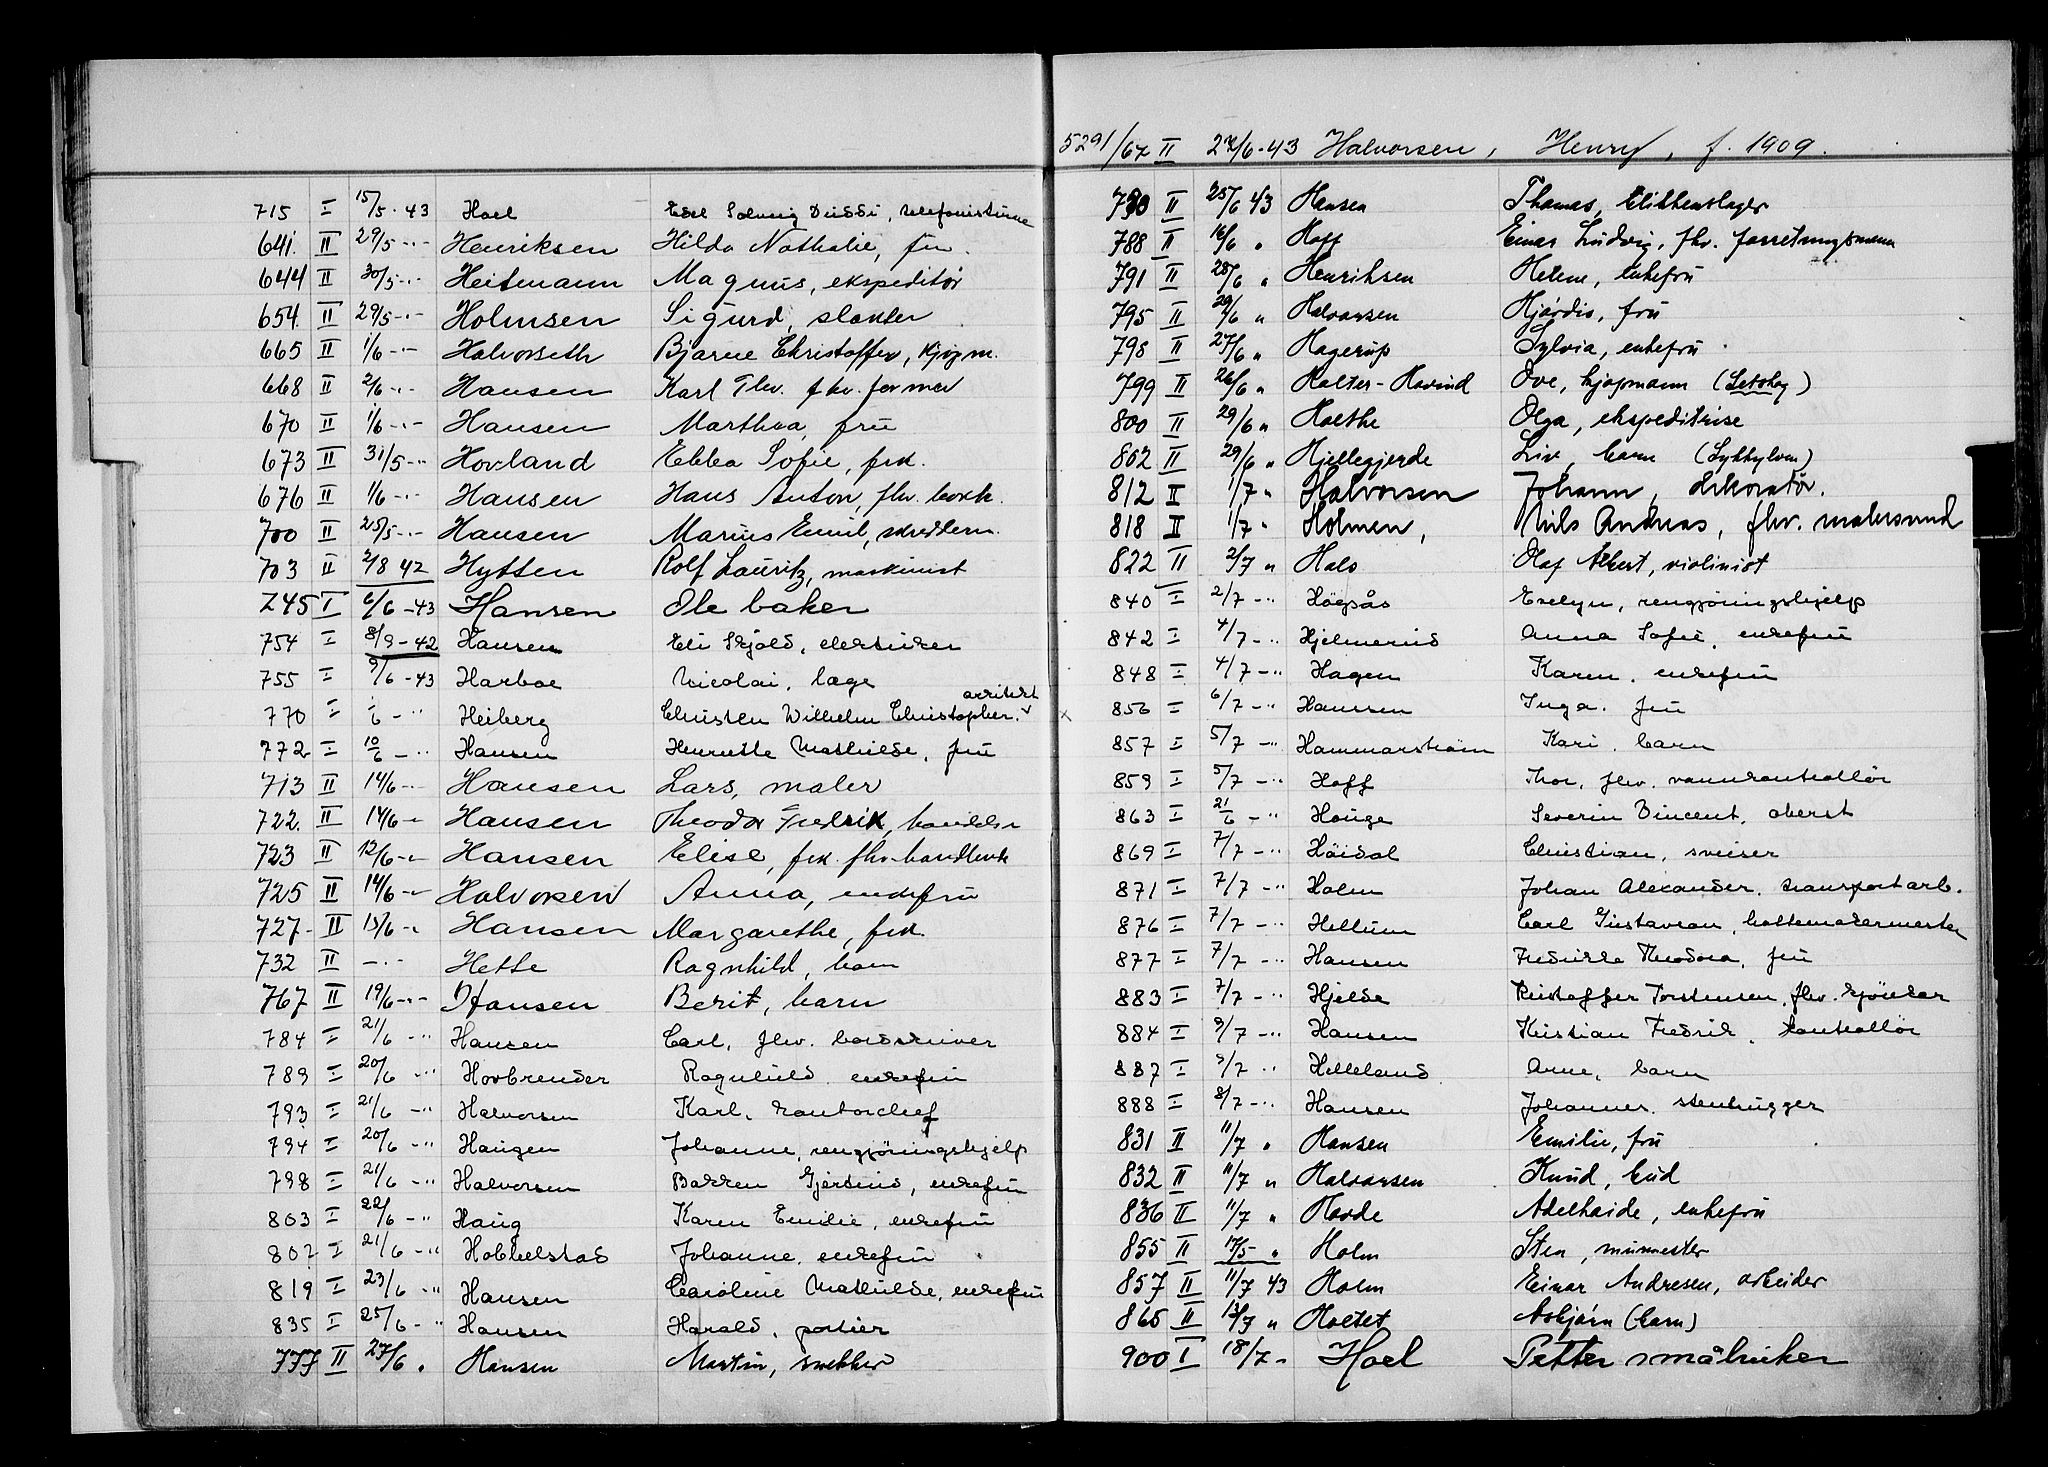 715 I 15/5-43 Hoel Esel Solveig Deissi, telefonistinne
641. II 29/5-"- Henriksen Hilda Nathalie, fru.
644 II 30/5-"- Heitmann Magnus, ekspeditør
654. II 29/5-"- Holmsen Sigurd, slakter
665 II 1/6-"- Halvorseth Bjarne Christoffer, kjøpm.
668 II 2/6-"- Hansen Karl Thv. fhv. former
670 II 1/6-"- Hansen Marthea, fru
673 II 31/5-"- Hovland Ebba Sofie, frk.
676 II 1/6-"- Hansen Hans Anton, fhv.
700 II 25/5-"- Hansen Marius Emil, skredderm.
703 II 2/8 42 Hytten Rolf Lauritz, maskinist
745 I 6/6-43 Hansen Ole baker
754 I 8/9-42 Hansen Eli Skjold, elektriker
755 I 9/6-43 Harboe Nicolai, læge
770 I -/6-" Heiberg Christen Wilhelm Christopher. arkitekt
772 I 10/6-" Hansen Henriette Mathilde, fru
713 II 14/6-" Hansen Lars, maler
722. II 14/6-" Hansen Theodor Fredrik, handelsr
723 II 12/6-" Hansen Elise, frk. fhv.
725 II 14/6-" Halvorsen Anna, enkefru
727- II 15/6-" Hansen Margarethe, frk.
732 II -"- Hette Ragnhild, barn
767 II 19/6-"- Hansen Berit, barn
784 I 21/6-" Hansen Carl, fhv. bordskriver
789 I 20/6-" Hovbrender Ragnhild. enkefru
793 I 21/6-" Halvorsen Karl, kontorchef
794 I 20/6-" Haugen Johanne, rengjøringshjelp
798 I 21/6-" Halvorsen Bakken Gjertine, enkefru
803 I 22/6-" Haug Karen Emilie, enkefru
807 I 21/6-" Hobbelstad Johanne, enkefru
819 I 23/6-" Hansen Caroline Mathilde, enkefru
835 I 25/6-" Hansen Harald, portier
777 II 27/6 " Hansen Martin, snekker
5291/67 II 27/6-43 Halvorsen, Henry, f. 1909.
790 II 25/6 43 Hansen Thomas, blikkenslager
788 II 16/6 " Hoff Einar Ludvig, fhv. forretningsmann
791 II 28/6 " Henriksen Helene, enkefru
795 II 29/6 " Halvorsen Hjørdis, fru
798 II 27/6 " Hagerup Sylvia, enkefru.
799 II 26/6 " Holter-Hovind Ove, kjøpmann (Setskog)
800 II 29/6 " Holthe Olga, ekspeditrise
802 II 29/6 " Hjellegjerde Liv, barn (Sykkylven)
812 II 1/7 " Halvorsen Johann, dekoratør.
818 II 1/7 " Holmen, Nils Andreas, fhv. malersvend
822 II 2/7 " Hals Olaf Albert, violinist
840 I 2/7-" Högsås Evelyn, rengjøringshjelp
842 I 4/7-" Hjelmerud Anna Sofie, enkefru
848 I 4/7-" Hagen Karen, enkefru
x 856 I 6/7-" Hanssen Inga. fru
857 I 5/7-" Hammarström Kari, barn
859 I 5/7-" Hoff Thor, fhv. vannkontrollör
863 I 21/6-" Houge Severin Vincent, oberst
869 I 7/7-" Höidal Christian, sveiser
871 I 7/7-" Holm Johan Alexander, transportarb.
876 I 7/7-" Hellum Carl Gustavsan, hattemakermester
877 I 7/7-" Hansen Fredrikke Theodora, fru
883 I 7/7-" Hjelde Kristoffer Torstensen, fhv. gjörtler
884 I 9/7-" Hansen Kristian Fredrik, kontrollör
887 I 9/7 " Helleland Arne, barn
888 I 8/7-" Hansen Johannes. stenhugger
831 II 11/7 " Hansen Emilie, fru
832 II 11/7 " Halvorsen Knud, bud
836 II 11/7 " Hovde Adelhaide, enkefru
855 II 17/5 " Holm Sten, murmester
857 II 11/7 43 Holm Einar Andresen, arbeider
865 II 13/7 " Holtet Asbjørn (barn)
900 I 18/7- Hoel Petter småbruker